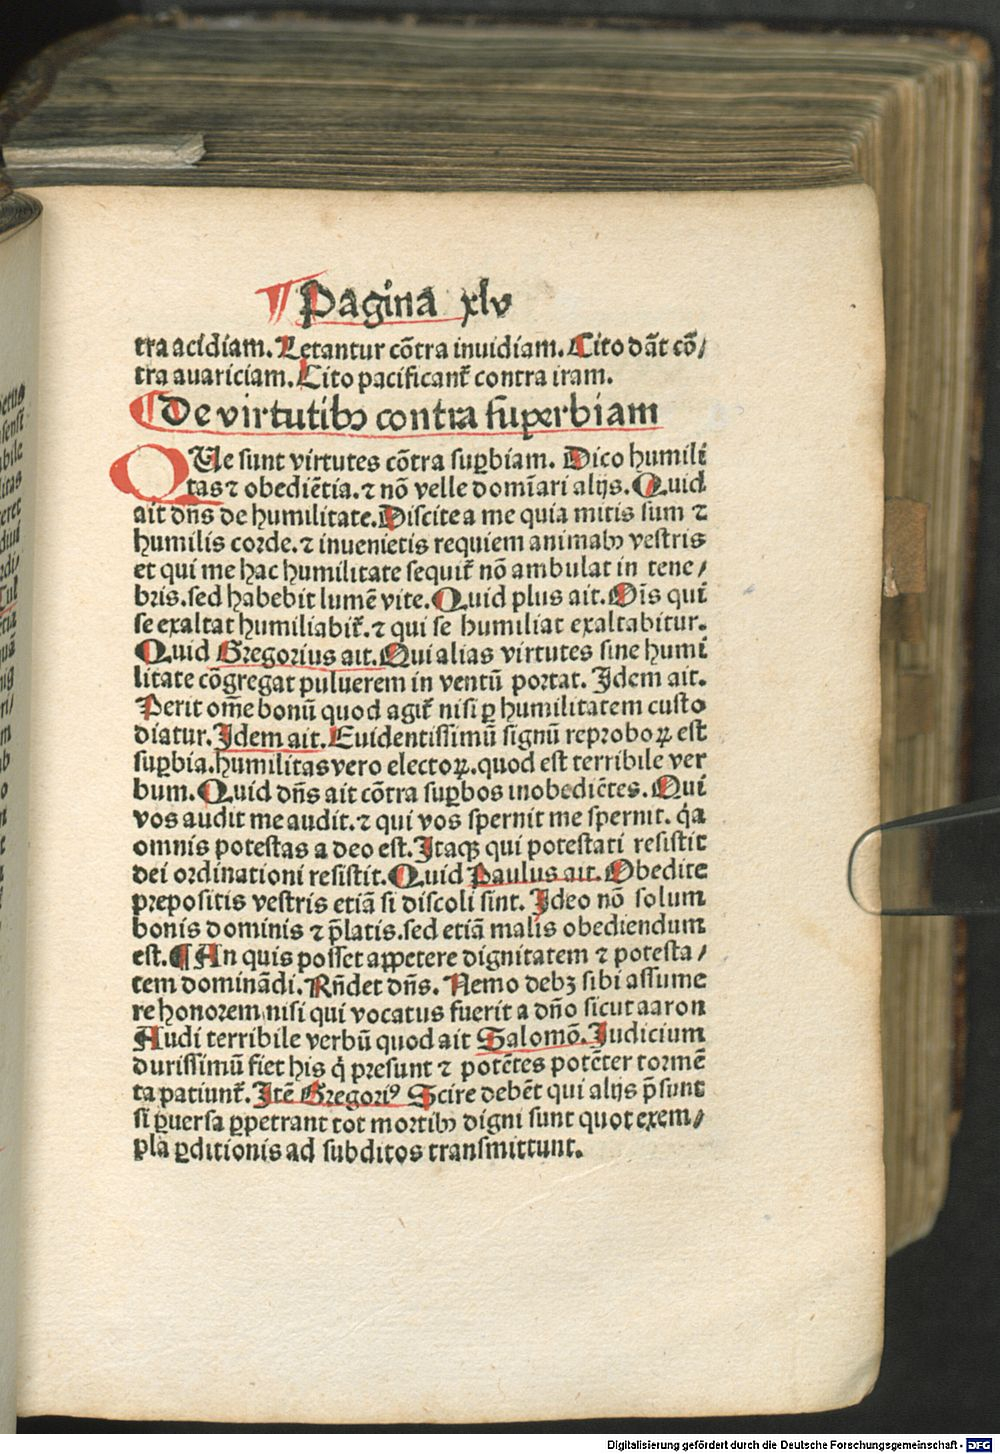 ¶ Pagina xlv
tra acidiam. Letantur cōtra inuidiam. Cito dāt cō/
tra auariciam. Cito pacificant᷑ contra iram.
¶ De virtutibꝰ contra superbiam
QUe sunt virtutes cōtra suꝑbiam. Dico humili
tas ⁊ obediētia. ⁊ nō velle domīari alijs. Quid
ait dn̄s de humilitate. Discite a me quia mitis sum ⁊
humilis corde. ⁊ inuenietis requiem animabꝰ vestris
et qui me hac humilitate sequit᷑ nō ambulat in tene/
bris. sed habebit lumē vite. Quid plus ait. Oīs qui
se exaltat humiliabit᷑. ⁊ qui se humiliat exaltabitur.
Quid Gregorius ait. Qui alias virtutes sine humi
litate cōgregat puluerem in ventū portat. Idem ait.
Perit om̄e bonū quod agit᷑ nisi ꝑ humilitatem custo
diatur. Idem ait. Euidentissimū signū reproboꝝ est
suꝑbia. humilitas vero electoꝝ. quod est terribile ver
bum. Quid dn̄s ait cōtra suꝑbos inobediētes. Qui
vos audit me audit. ⁊ qui vos spernit me spernit. q̇a
omnis potestas a deo est. Itaqꝫ qui potestati resistit
dei ordinationi resistit. Quid Paulus ait. Obedite
prepositis vestris etiā si discoli sint. Ideo nō solum
bonis dominis ⁊ p̄latis. sed etiā malis obediendum
est. ¶ An quis posset appetere dignitatem ⁊ potesta/
tem domināndi. Rn̄det dn̄s. Nemo debꝫ sibi assume
re honorem nisi qui vocatus fuerit a dn̄o sicut aaron
Audi terribile verbū quod ait Salomō. Iudicium
durissimū fiet his q̇ presunt ⁊ potētes potēter tormē
ta patiunt᷑. Itē Gregoriꝰ Scire debēt qui alijs p̄sunt
si ꝑuersa ꝑpetrant tot mortibꝰ digni sunt quot exem/
pla ꝑditionis ad subditos transmittunt.
Digitalisierung gefördert durch die Deutsche Forschungsgemeinschaft - DFG